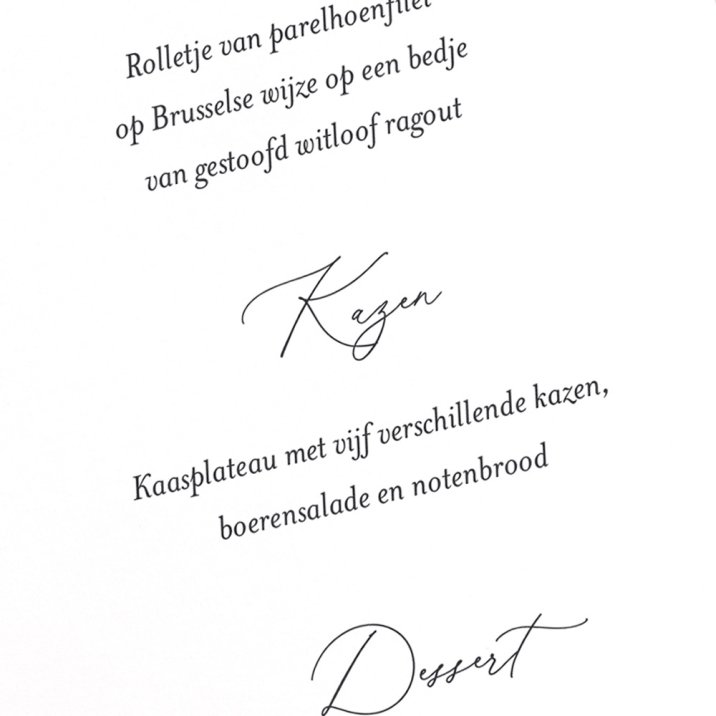 Rolletje van parelhoenfilet
op Brusselse wijze op een bedje
van gestoofd witloof ragout
Kazen
Kaasplateau met vijf verschillende kazen,
boerensalade en notenbrood
Dessert